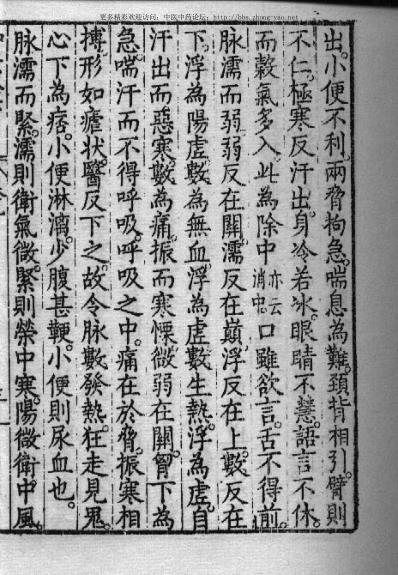 更多精彩欢迎访问：中医中药论坛：http://bbs.zhong-yao.net
出。小便不利。兩脅拘急。喘息為難。頸背相引。臂則
不仁。極寒反汗出。身冷若冰。眼睛不慧。語言不休。
而穀氣多入。此為除中亦云消中。口雖欲言。舌不得前。
脉濡而弱。弱反在關。濡反在巔。浮反在上。數反在
下。浮為陽虛。數為無血。浮為虛。數生熱。浮為虛。自
汗出而惡寒。數為痛。振而寒慄。微弱在關。胷下為
急。喘汗而不得呼吸。呼吸之中。痛在於脅。振寒相
搏。形如瘧狀。醫反下之。故令脉數發熱。狂走見鬼。
心下為痞。小便淋漓。少腹甚鞕。小便則尿血也。
脉濡而緊。濡則衛氣微。緊則榮中寒。陽微衛中風。